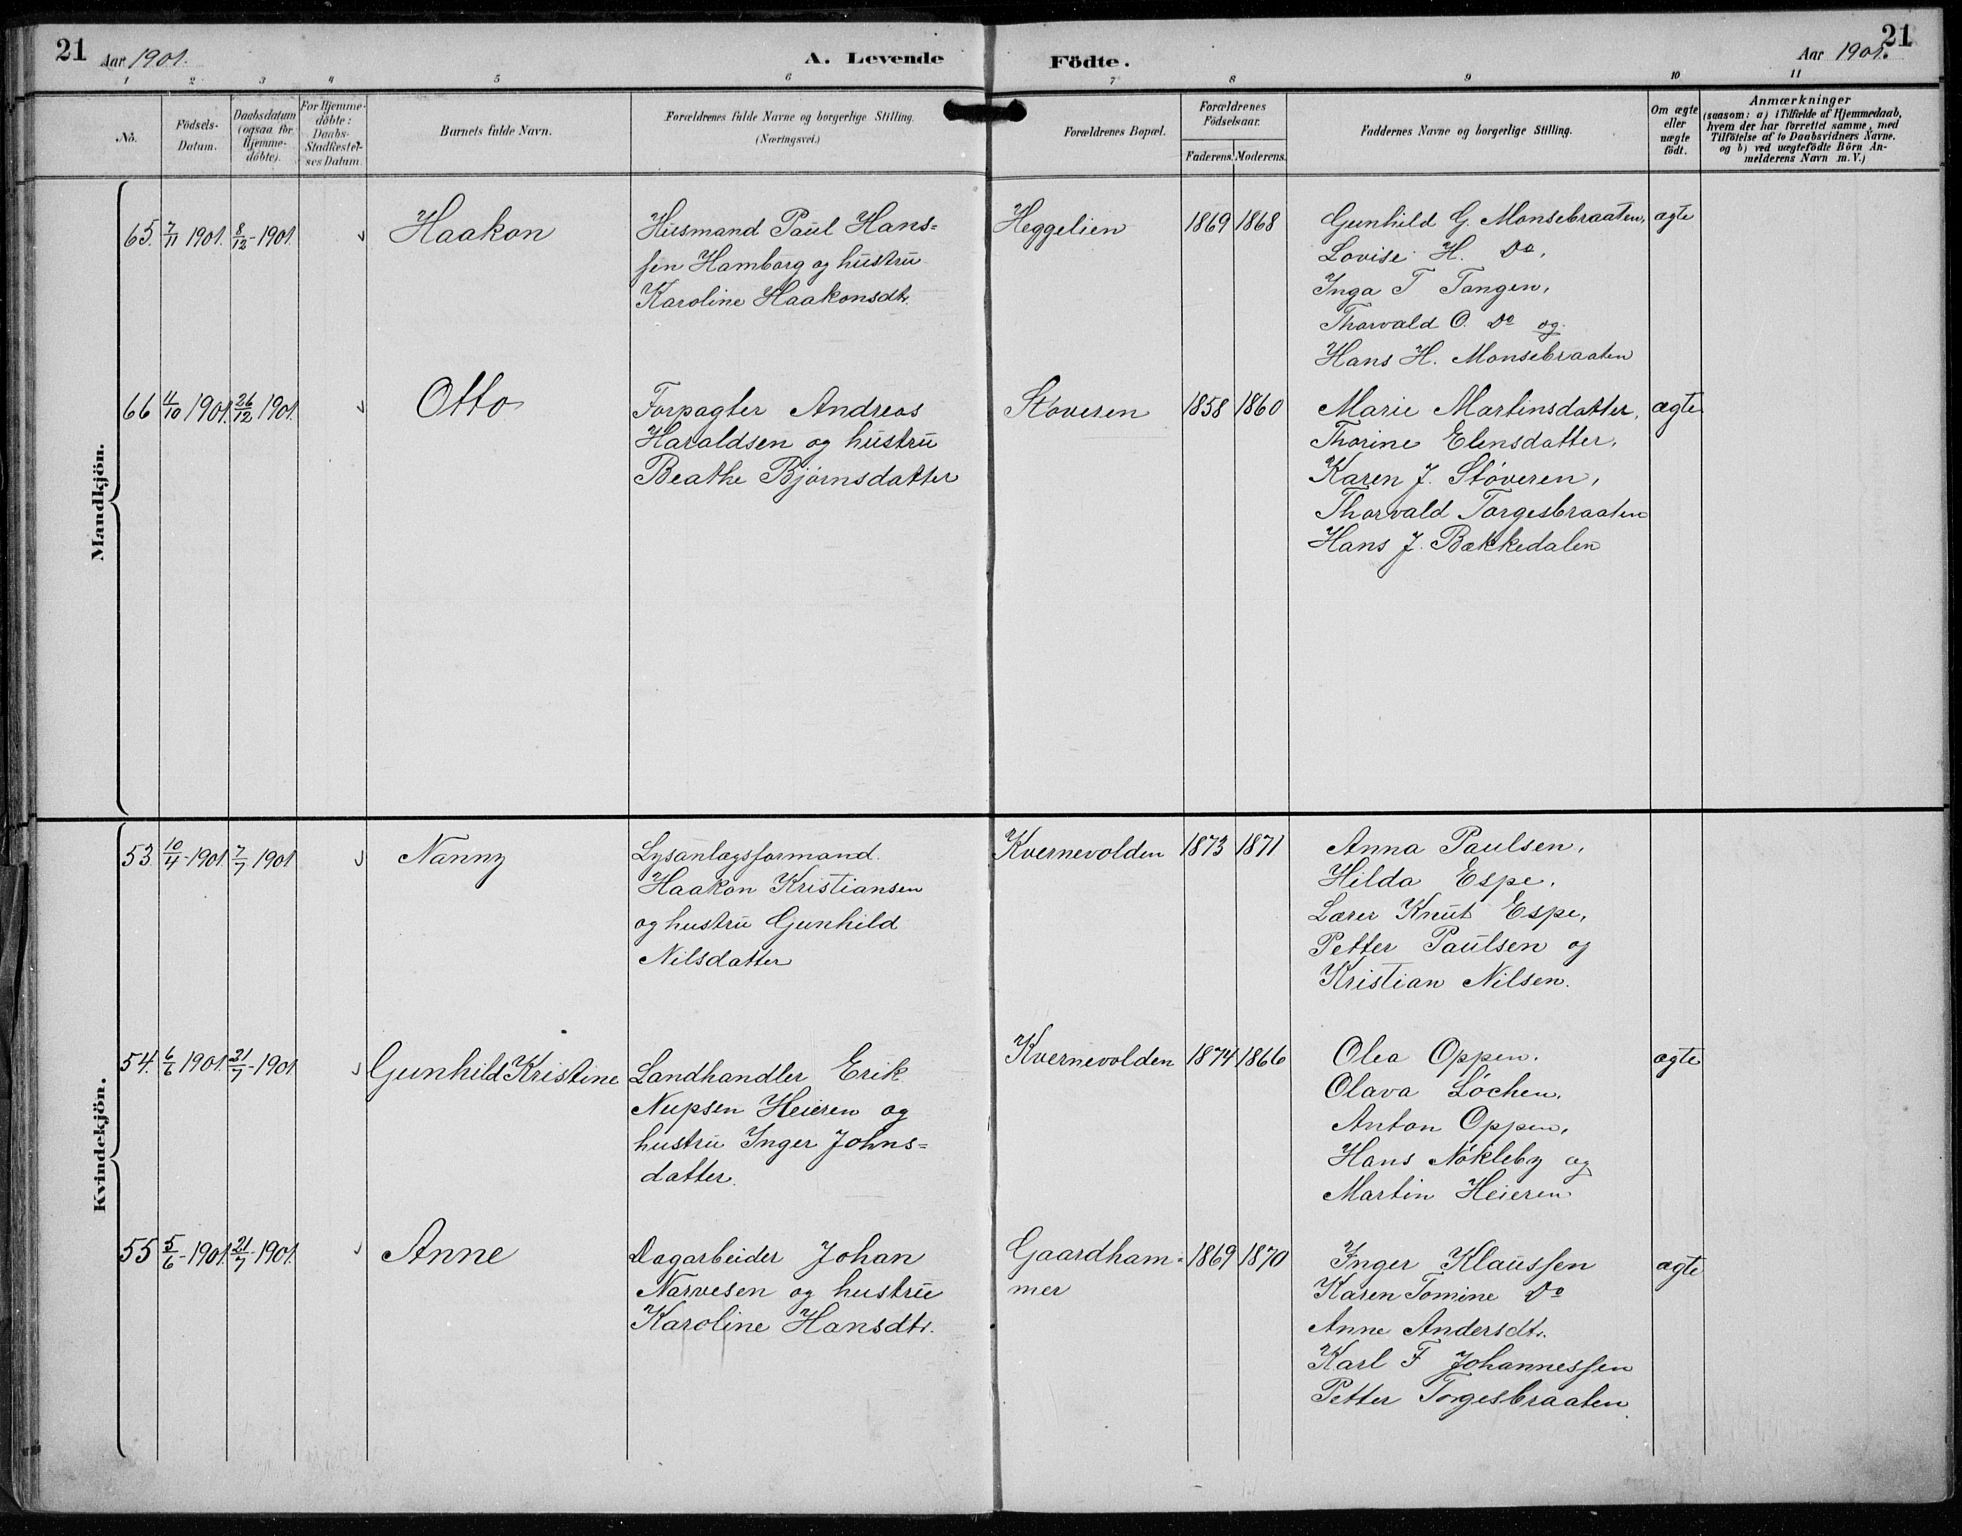 21 Aar 1901. A. Levende Födte. Aar 1901. 21
1 2 3 4 5 6 7 8 9 10 11
No. Födsels-Datum. Daabsdatum (ogsaa for Hjemme-döbte). For Hjemme-döbte: Daabs-Stadfestel-ses Datum. Barnets fulde Navn. Forældrenes fulde Navne og borgerlige Stilling. (Næringsvei.) Forældrenes Bopæl. Forældrenes Födselsaar. Faderens. Moderens. Faddernes Navne og borgerlige Stilling. Om ægte eller uægte födt. Anmærkninger
(saasom: a) i Tilfælde af Hjemmedaab,
hvem der har forrettet samme, med
Tilföielse af to Daabsvidners Navne.
og b) ved uægtefödte Börn An-
melderens Navn m. V.)
Mandkjön.
65. 7/11 1901. 8/12-1901. Haakon Husmand Paul Hans= Heggelien 1869 1868 Gunhild G. Monsebraaten, ægte
sen Hamborg og hustru Lovise H. Do,
Karoline Haakonsdtr. Inga T Tangen,
Thorvald O. Do og
Hans H. Monsebraaten
66 4/10 1901. 26/12 1901. Otto Forpagter Andreas Støveren 1858 1860 Marie Martinsdatter, ægte
Haraldsen og hustru Thorine Elensdatter,
Beathe Bjørnsdatter Karen J. Støveren,
Thorvald Torgesbraaten
Hans J. Bækkedalen
Kvindekjön.
53 10/4-1901. 7/7 1901 Nanny Lysanlægsformand. Kvernevolden 1873 1871 Anna Paulsen,
Haakon Kristiansen Hilda Espe,
og hustru Gunhild Lærer Knut Espe,
Nilsdatter Petter Paulsen og
Kristian Nilsen.
54. 6/6 1901. 21/7-1901. Gunhild Kristine Landhandler Erik Kvernevolden 1874 1866 Olea Oppen. ægte
Nupsen Heieren og Olava Løchen,
hustru Inger Johns= Anton Oppen,
datter. Hans Nøkleby og
Martin Heieren
55 5/6-1901. 21/7-1901. Anne Dagarbeider Johan Gaardham= 1869 1870 Inger Klaussen ægte
Narvesen og hustru mer Karen Tomine Do
Karoline Hansdtr. Anne Andersdtr.
Karl F Johannessen
Petter Torgesbraaten